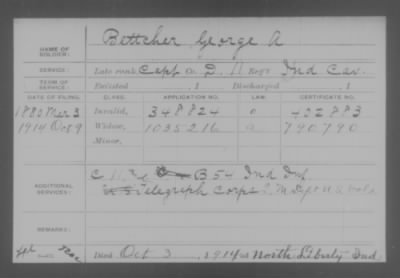 NAME OF SOLDIER: Bettcher George A
SERVICE: Late rank, Capt Co. D, 11 Reg't Ind Cav.
TERM OF SERVICE: Enlisted , 1 Discharged , 1
DATE OF FILING. CLASS. APPLICATION NO. LAW. CERTIFICATE NO.
1880 Mar 3 Invalid, 348824 402883
1914 Oct 9 Widow, 1035216 790790
Minor,
ADDITIONAL SERVICES: C B 54 Ind Inf.
Telegraph Corps Q.M. Dept U.S. Vols
REMARKS:
Died Oct 3, 1914 at North Liberty Ind